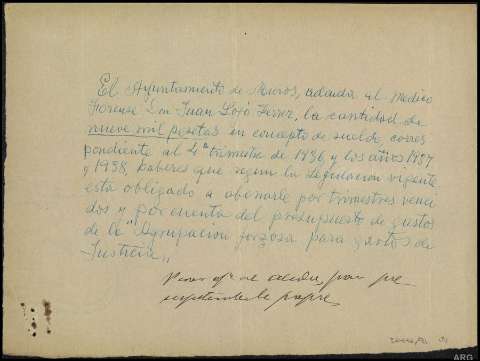 El Ayuntamiento de Muros, adeuda al Medico
Forense Don Juan Lojo Ferrer, la cantidad de
nueve mil pesetas en concepto de sueldo corres
pondiente al 4º trimestre de 1936 y los años 1937
y 1938, haberes que segun la Legislacion vigente
esta obligado a abonarle por trimestres venci
dos y por cuenta del presupuesto de gastos
de la "Agrupacion forzosa para gastos de
Justicia„
ARG